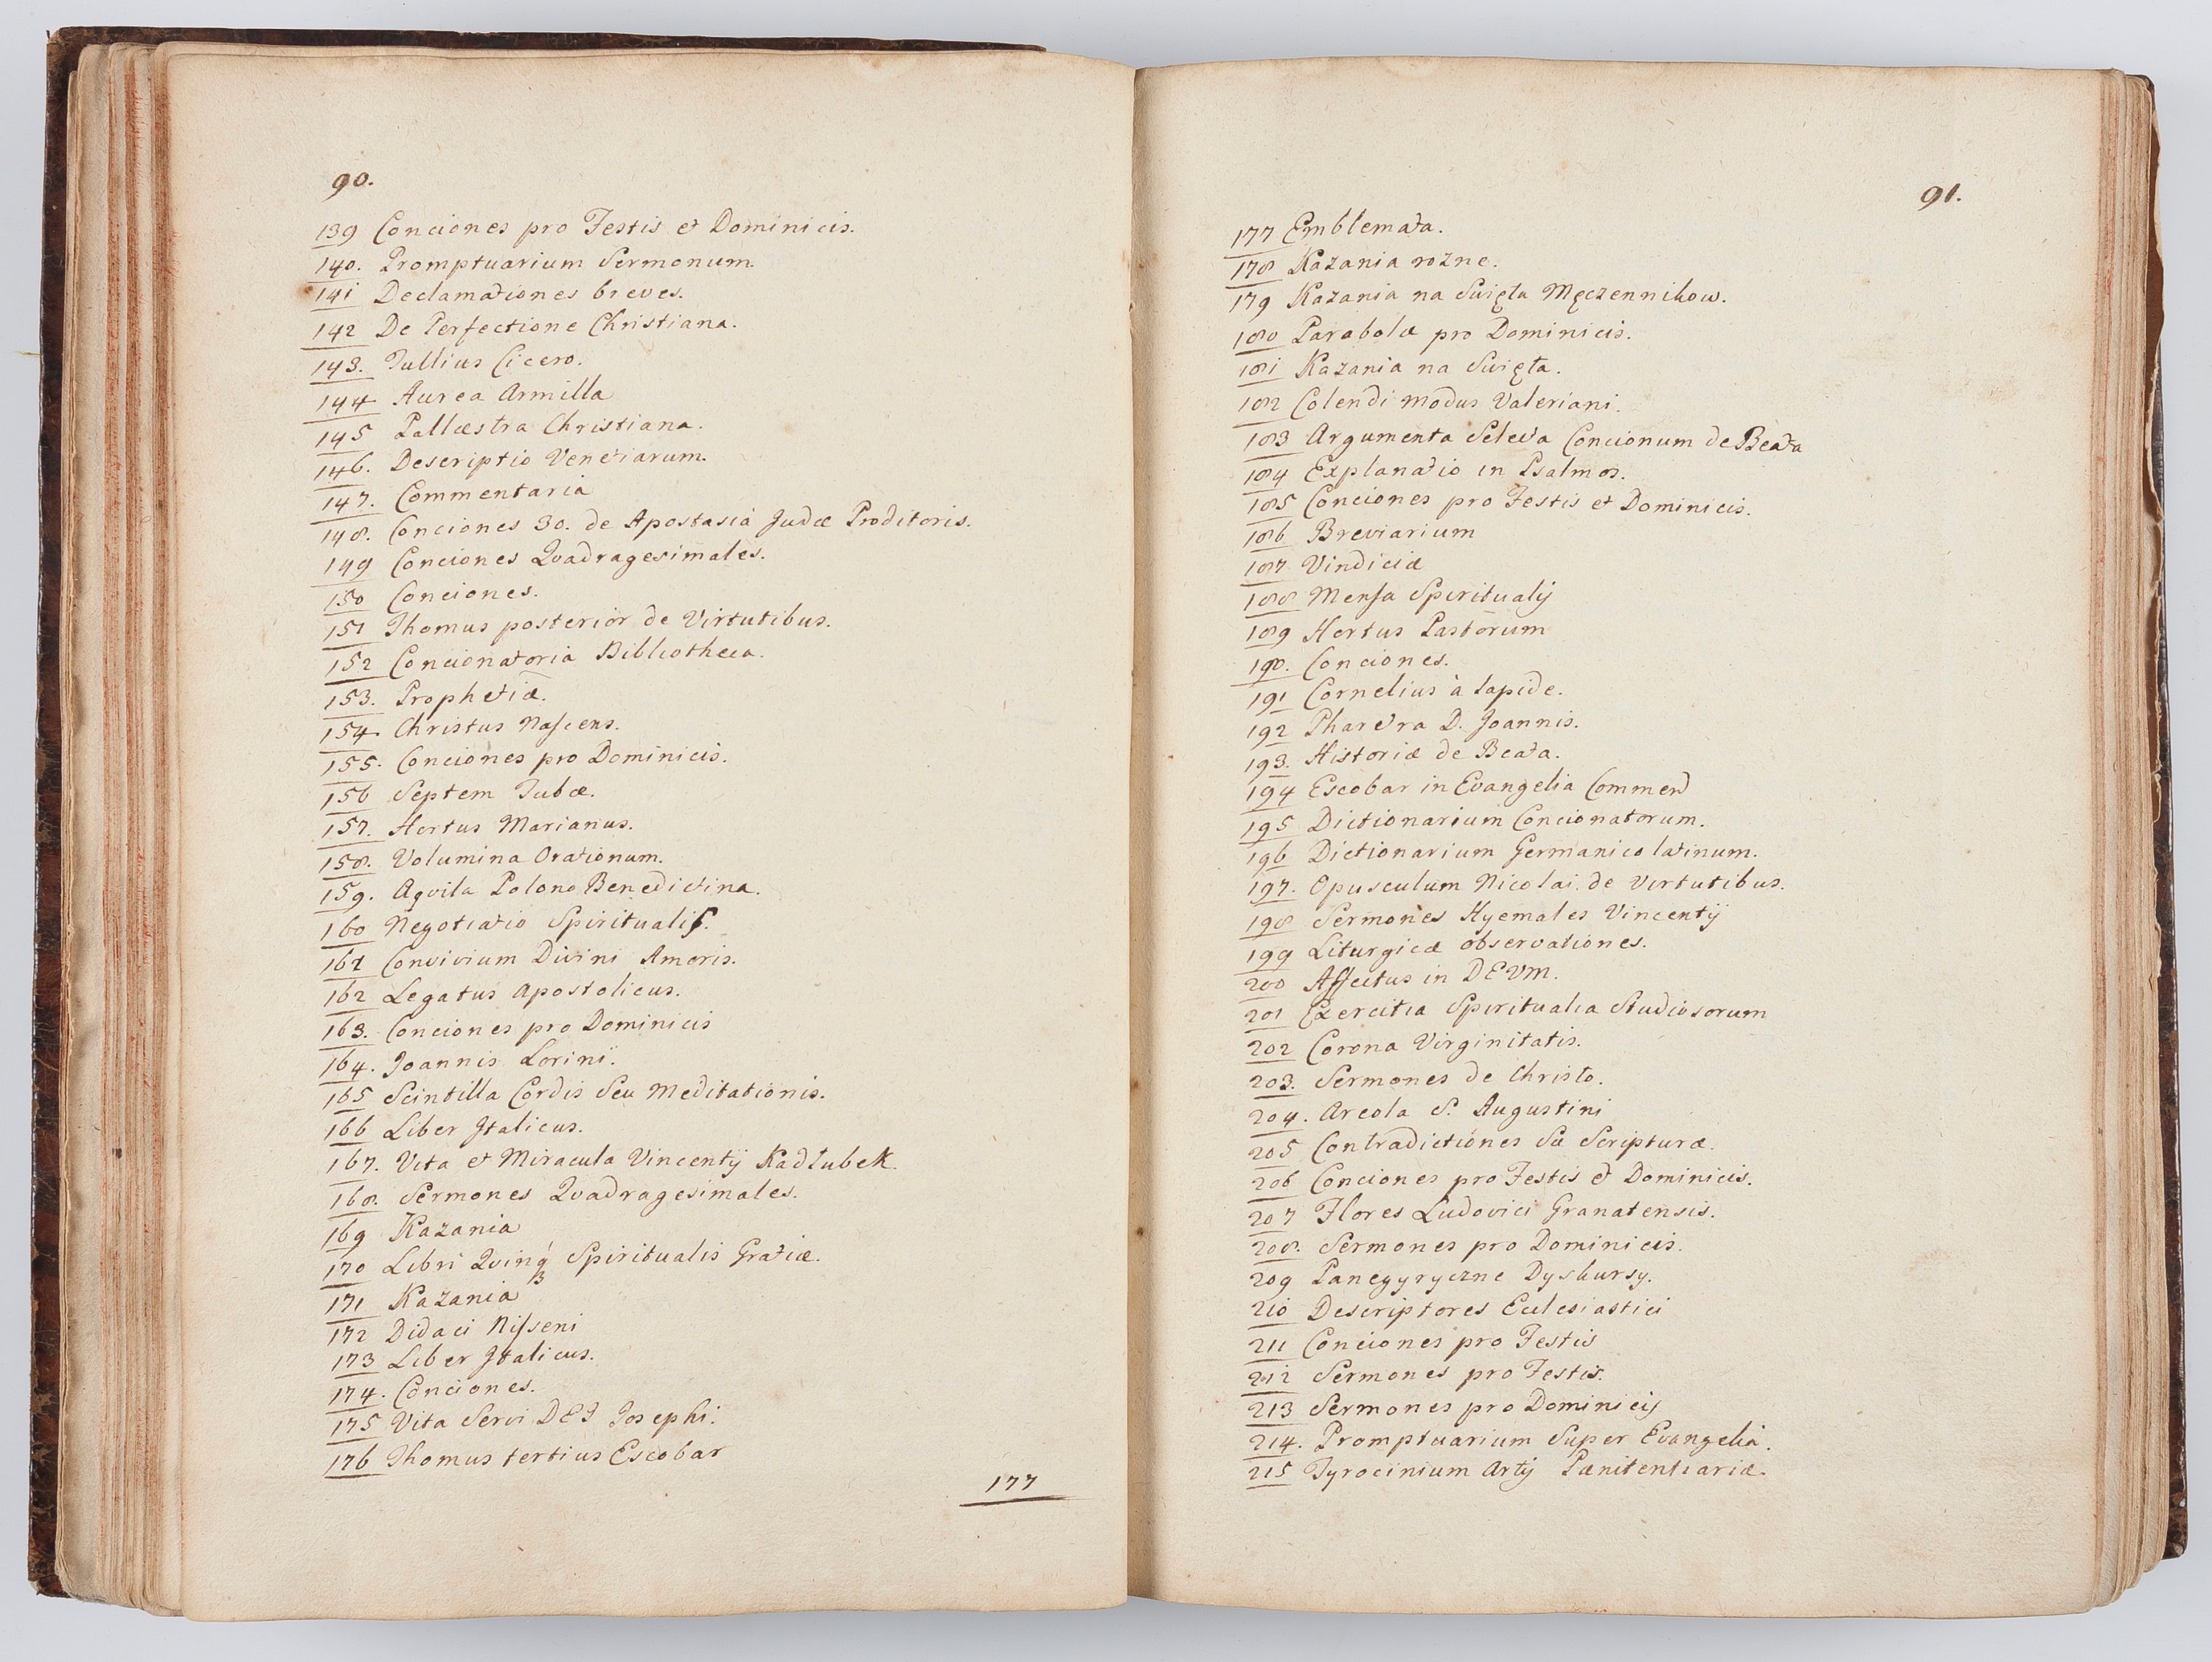 90.
139 Conciones pro Festis et Dominicis.
140. Promptuarium Sermonum.
141 Declamationes breves.
142 De Perfectione Christiana.
143. Tullius Cicero.
144 Aurea Armilla
145 Pallæstra Christiana.
146. Descriptio Venetiarum.
147. Commentaria
148. Conciones 30. de Apostasia Judæ Proditoris.
149 Conciones Quadragesimales.
150 Conciones.
151 Thomus posterior de Virtutibus.
152 Concionatoria Bibliotheca.
153. Prophetiæ.
154 Christus Nascens.
155. Conciones pro Dominicis.
156 Septem Tubæ.
157. Hortus Marianus.
158. Volumina Orationum.
159. Aqvila Polono Benedictina.
160 Negotiatio Spiritualis.
161 Convivium Divini Amoris.
162 Legatus Apostolicus.
163. Conciones pro Dominicis
164. Joannis Lorini.
165 Scintilla Cordis Seu Meditationis.
166 Liber Italicus.
167. Vita et Miracula Vincentij Kadłubek.
168. Sermones Quadragesimales.
169 Kazania
170 Libri Qvinq₃ Spiritualis Gratiæ.
171 Kazania
172 Didaci Nisseni
173 Liber Italicus.
174. Conciones.
175 Vita Servi DEI Josephi.
176 Thomus tertius Escobar
177
91.
177 Emblemata.
178 Kazania rozne.
179 Kazania na Swięta Męczennikow.
180 Parabolæ pro Dominicis.
181 Kazania na Swięta.
182 Colendi modus Valeriani.
183 Argumenta Selecta Concionum de Beata
184 Explanatio in Psalmos.
185 Conciones pro Festis et Dominicis.
186 Breviarium
187 Vindiciæ
188 Mensa Spiritualij
189 Hortus Pastorum
190. Conciones.
191 Cornelius à lapide.
192 Pharetra D. Joannis.
193. Historiæ de Beata.
194 Escobar in Evangelia Comment
195 Dictionarium Concionatorum.
196 Dictionarium Germanico latinum.
197. Opusculum Nicolai de Virtutibus.
198 Sermones Hyemales Vincentij
199 Liturgicæ observationes.
200 Affectus in DEVM.
201 Exercitia Spiritualia Studiosorum
202 Corona Virginitatis.
203. Sermones de Christo.
204. Areola S. Augustini
205 Contradictiones Sæ Scripturæ.
206 Conciones pro Festis et Dominicis.
207 Flores Ludovici Granatensis.
208. Sermones pro Dominicis.
209 Panegyryczne Dyskursy.
210 Descriptores Ecclesiastici
211 Conciones pro Festis
212 Sermones pro Festis.
213 Sermones pro Dominicij
214. Promptuarium Super Evangelia.
215 Tyrocinium Artij Pænitentiariæ.